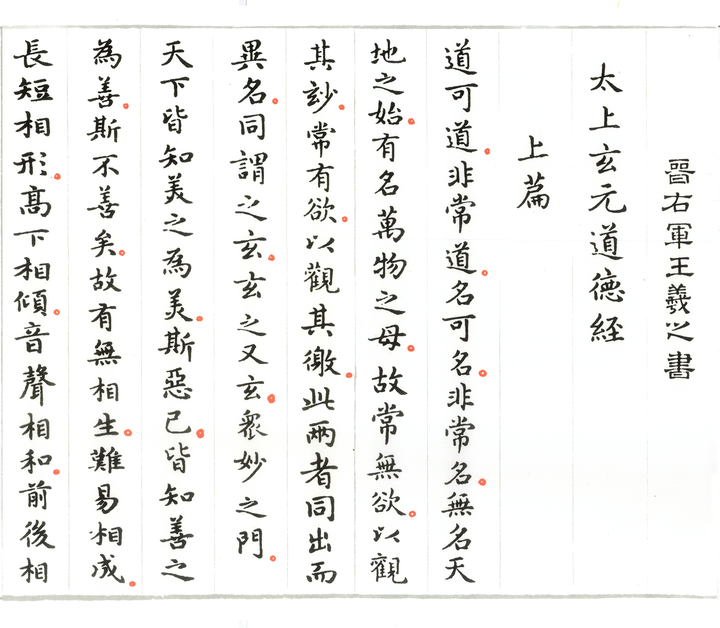 晉右軍王羲之書
太上玄元道德経
上篇
道可道。非常道。名可名。非常名。無名天
地之始。有名萬物之母。故常無欲。以觀
其玅。常有欲。以觀其徼。此两者同出而
異名。同謂之玄。玄之又玄。眾妙之門。
天下皆知美之為美。斯惡已。皆知善之
為善。斯不善矣。故有無相生。難易相成。
長短相形。髙下相傾。音聲相和。前後相